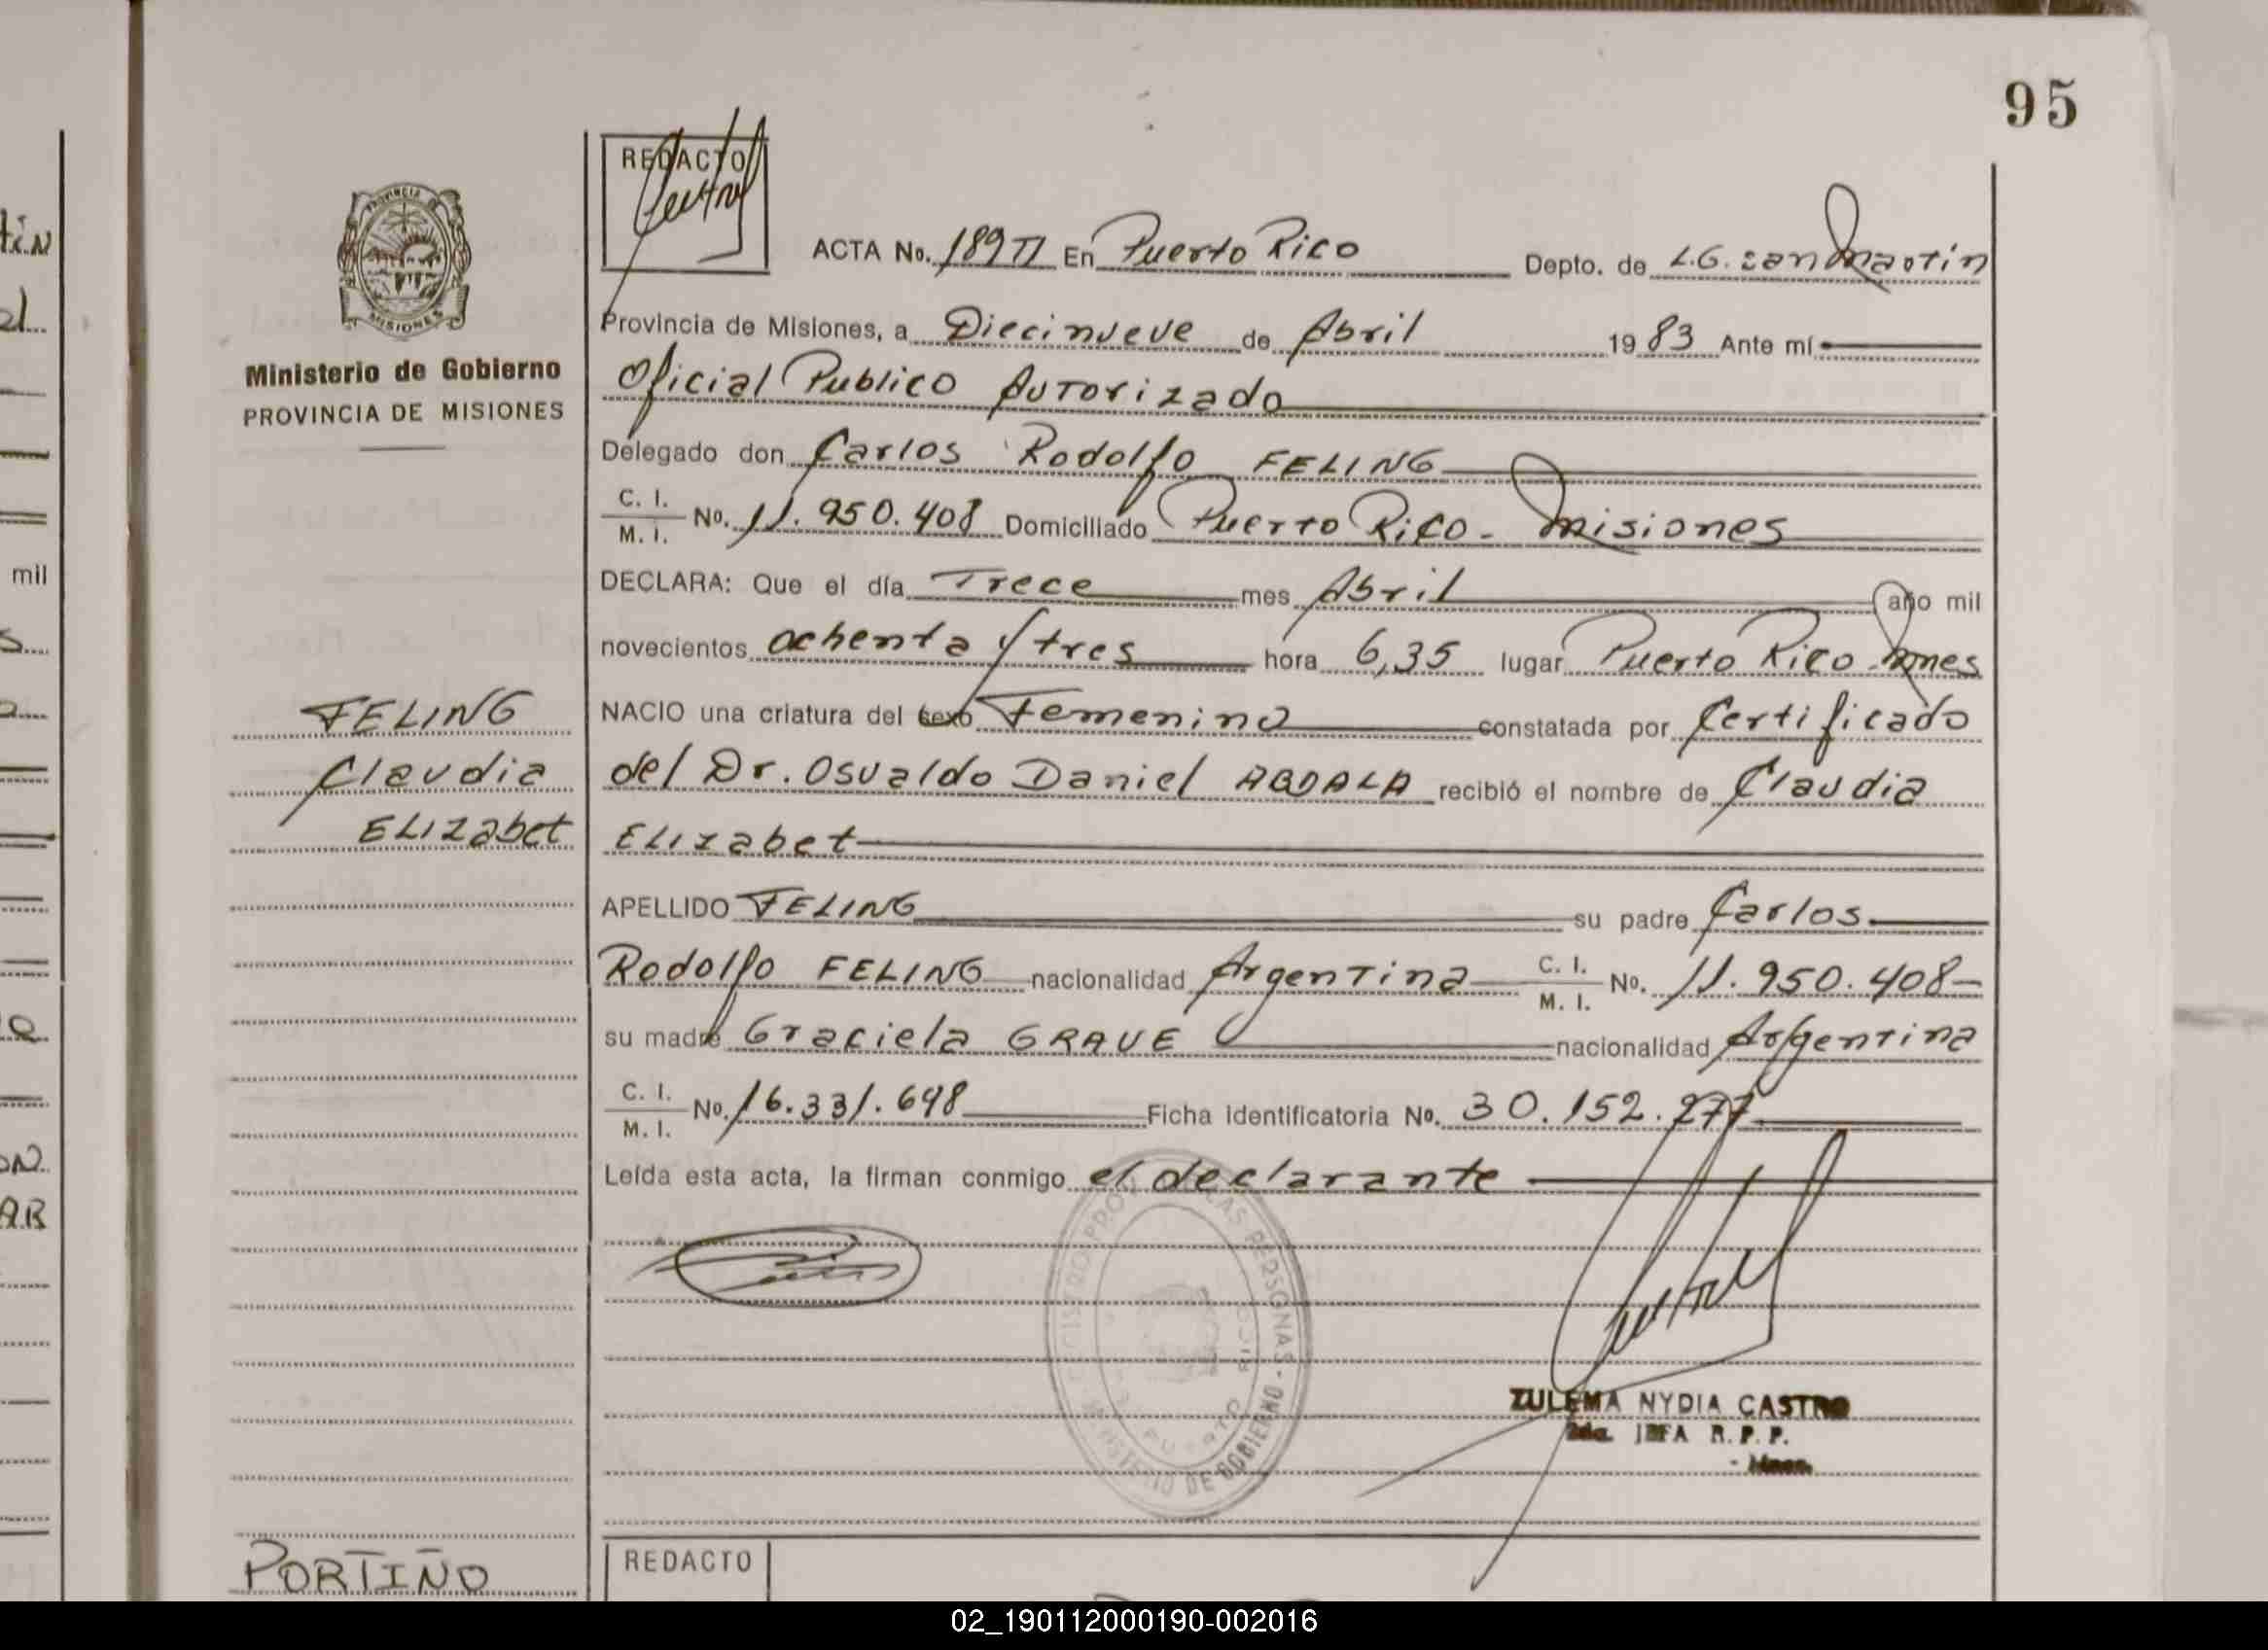 95
REDACTO
ACTA No. 189 TI En Puerto Rico Depto. de L.G. san Martin
PROVINCIA
MISIONES
Provincia de Misiones, a Diecinueve de Abril 1983 Ante mí
Ministerio de Gobierno
PROVINCIA DE MISIONES
Oficial Publico Autorizado
Delegado don Carlos Rodolfo FELING
C. I.
M. I. No. 11.950.408 Domiciliado Puerto Rico - Misiones
DECLARA: Que el día Trece mes Abril año mil
novecientos ochenta y tres hora 6,35 lugar Puerto Rico - Mnes
FELING
Claudia
ELIZabet
NACIO una criatura del sexo Femenino constatada por Certificado
del Dr. Osvaldo Daniel ABDALA recibió el nombre de Claudia
ELIzabet
APELLIDO FELING su padre Carlos
Rodolfo FELING nacionalidad Argentina C. I.
M. I. No. 11.950.408
su madre Graciela GRAVE nacionalidad Argentina
C. I.
M. I. No. 16.331.698 Ficha identificatoria No. 30.152.277
Leída esta acta, la firman conmigo el declarante
PERSONAS - MINISTERIO DE GOBIERNO
PUERTO RICO
ZULEMA NYDIA CASTRO
2da. JEFA R. P. P.
- Mnes.
PORTIÑO
REDACTO
mil
02_190112000190-002016